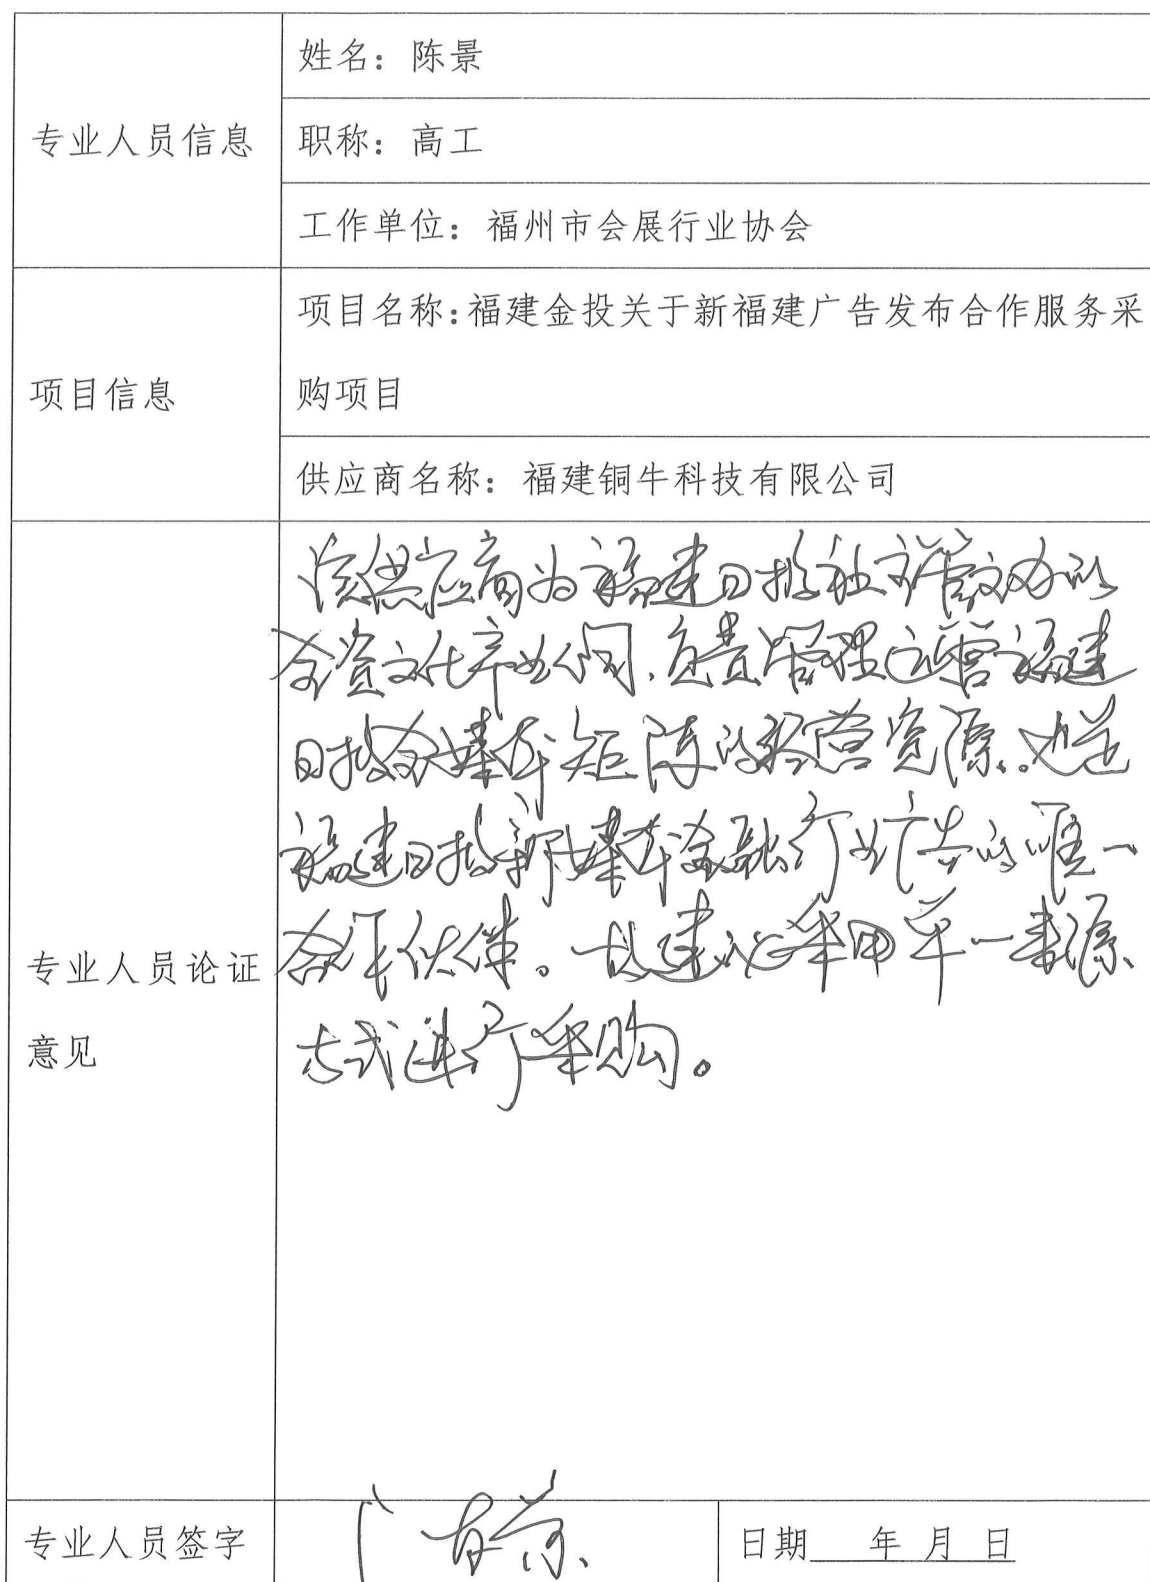 专业人员信息
姓名：陈景
职称：高工
工作单位：福州市会展行业协会
项目信息
项目名称：福建金投关于新福建广告发布合作服务采
购项目
供应商名称：福建铜牛科技有限公司
专业人员论证
意见
该供应商为福建日报社主管主办的
全资文化产业公司，负责管理运营福建
日报全媒体矩阵的经营资源。也是
福建日报新媒体金融行业广告的唯一
合作伙伴。故建议采用单一来源
方式进行采购。
专业人员签字
陈景
日期 年 月 日